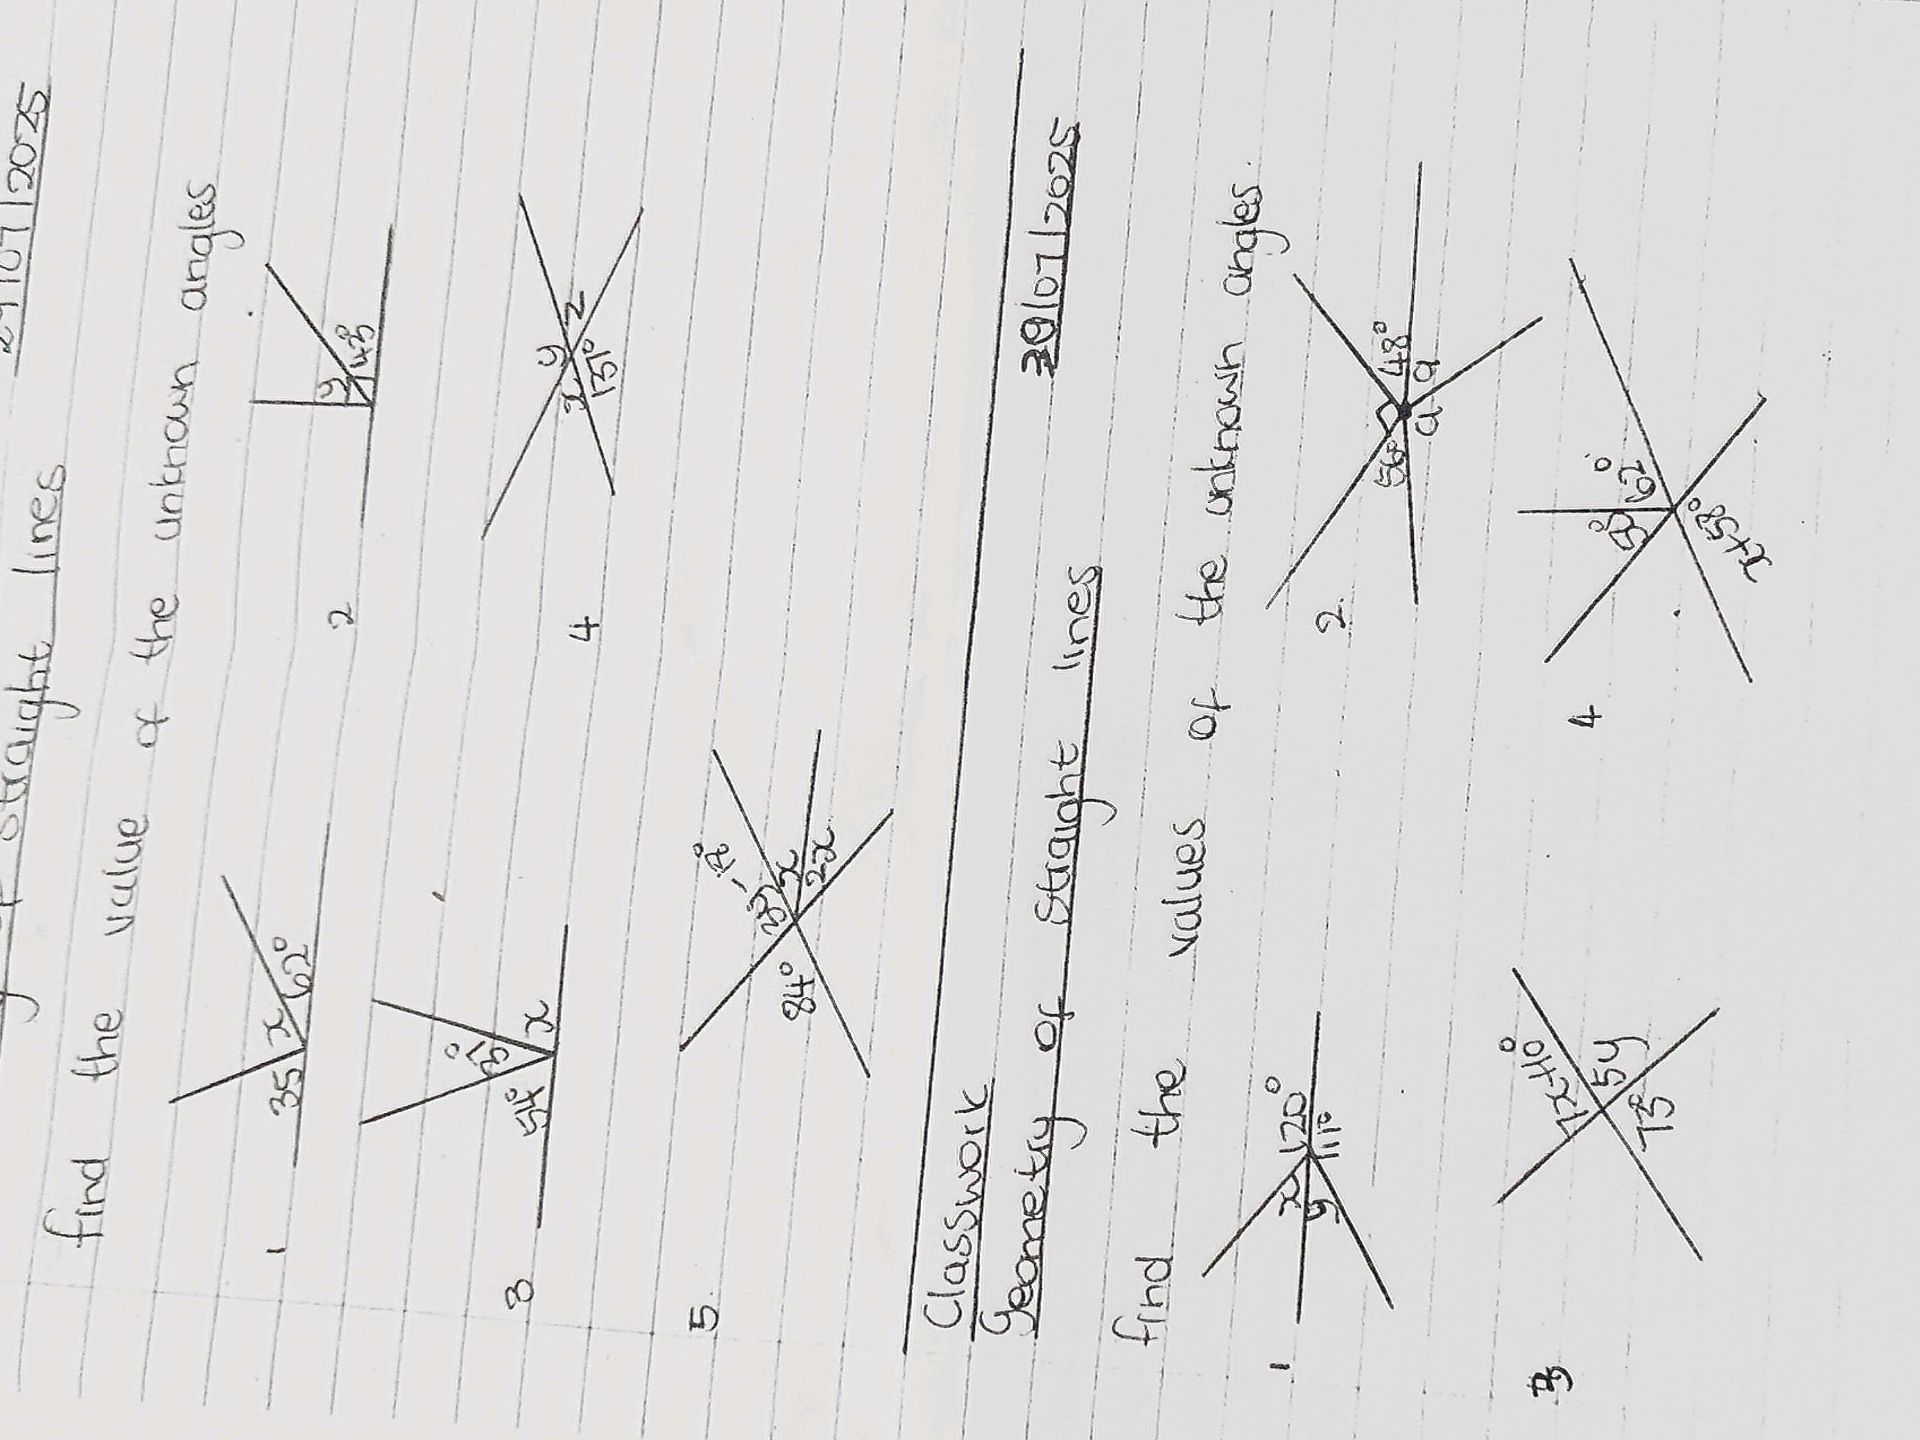 Straight lines 29/07/2025
find the value of the unknown angles
1 35 x 62°
2 y 43°
3 54° x
4 x y z 137°
5. x 2x 84°
Classwork
Geometry of straight lines 30/07/2025
find the values of the unknown angles.
1 x 120° y 111°
2. 56° 48° a a
3 7x+10° 5y 73°
4 50° 62° x+58°